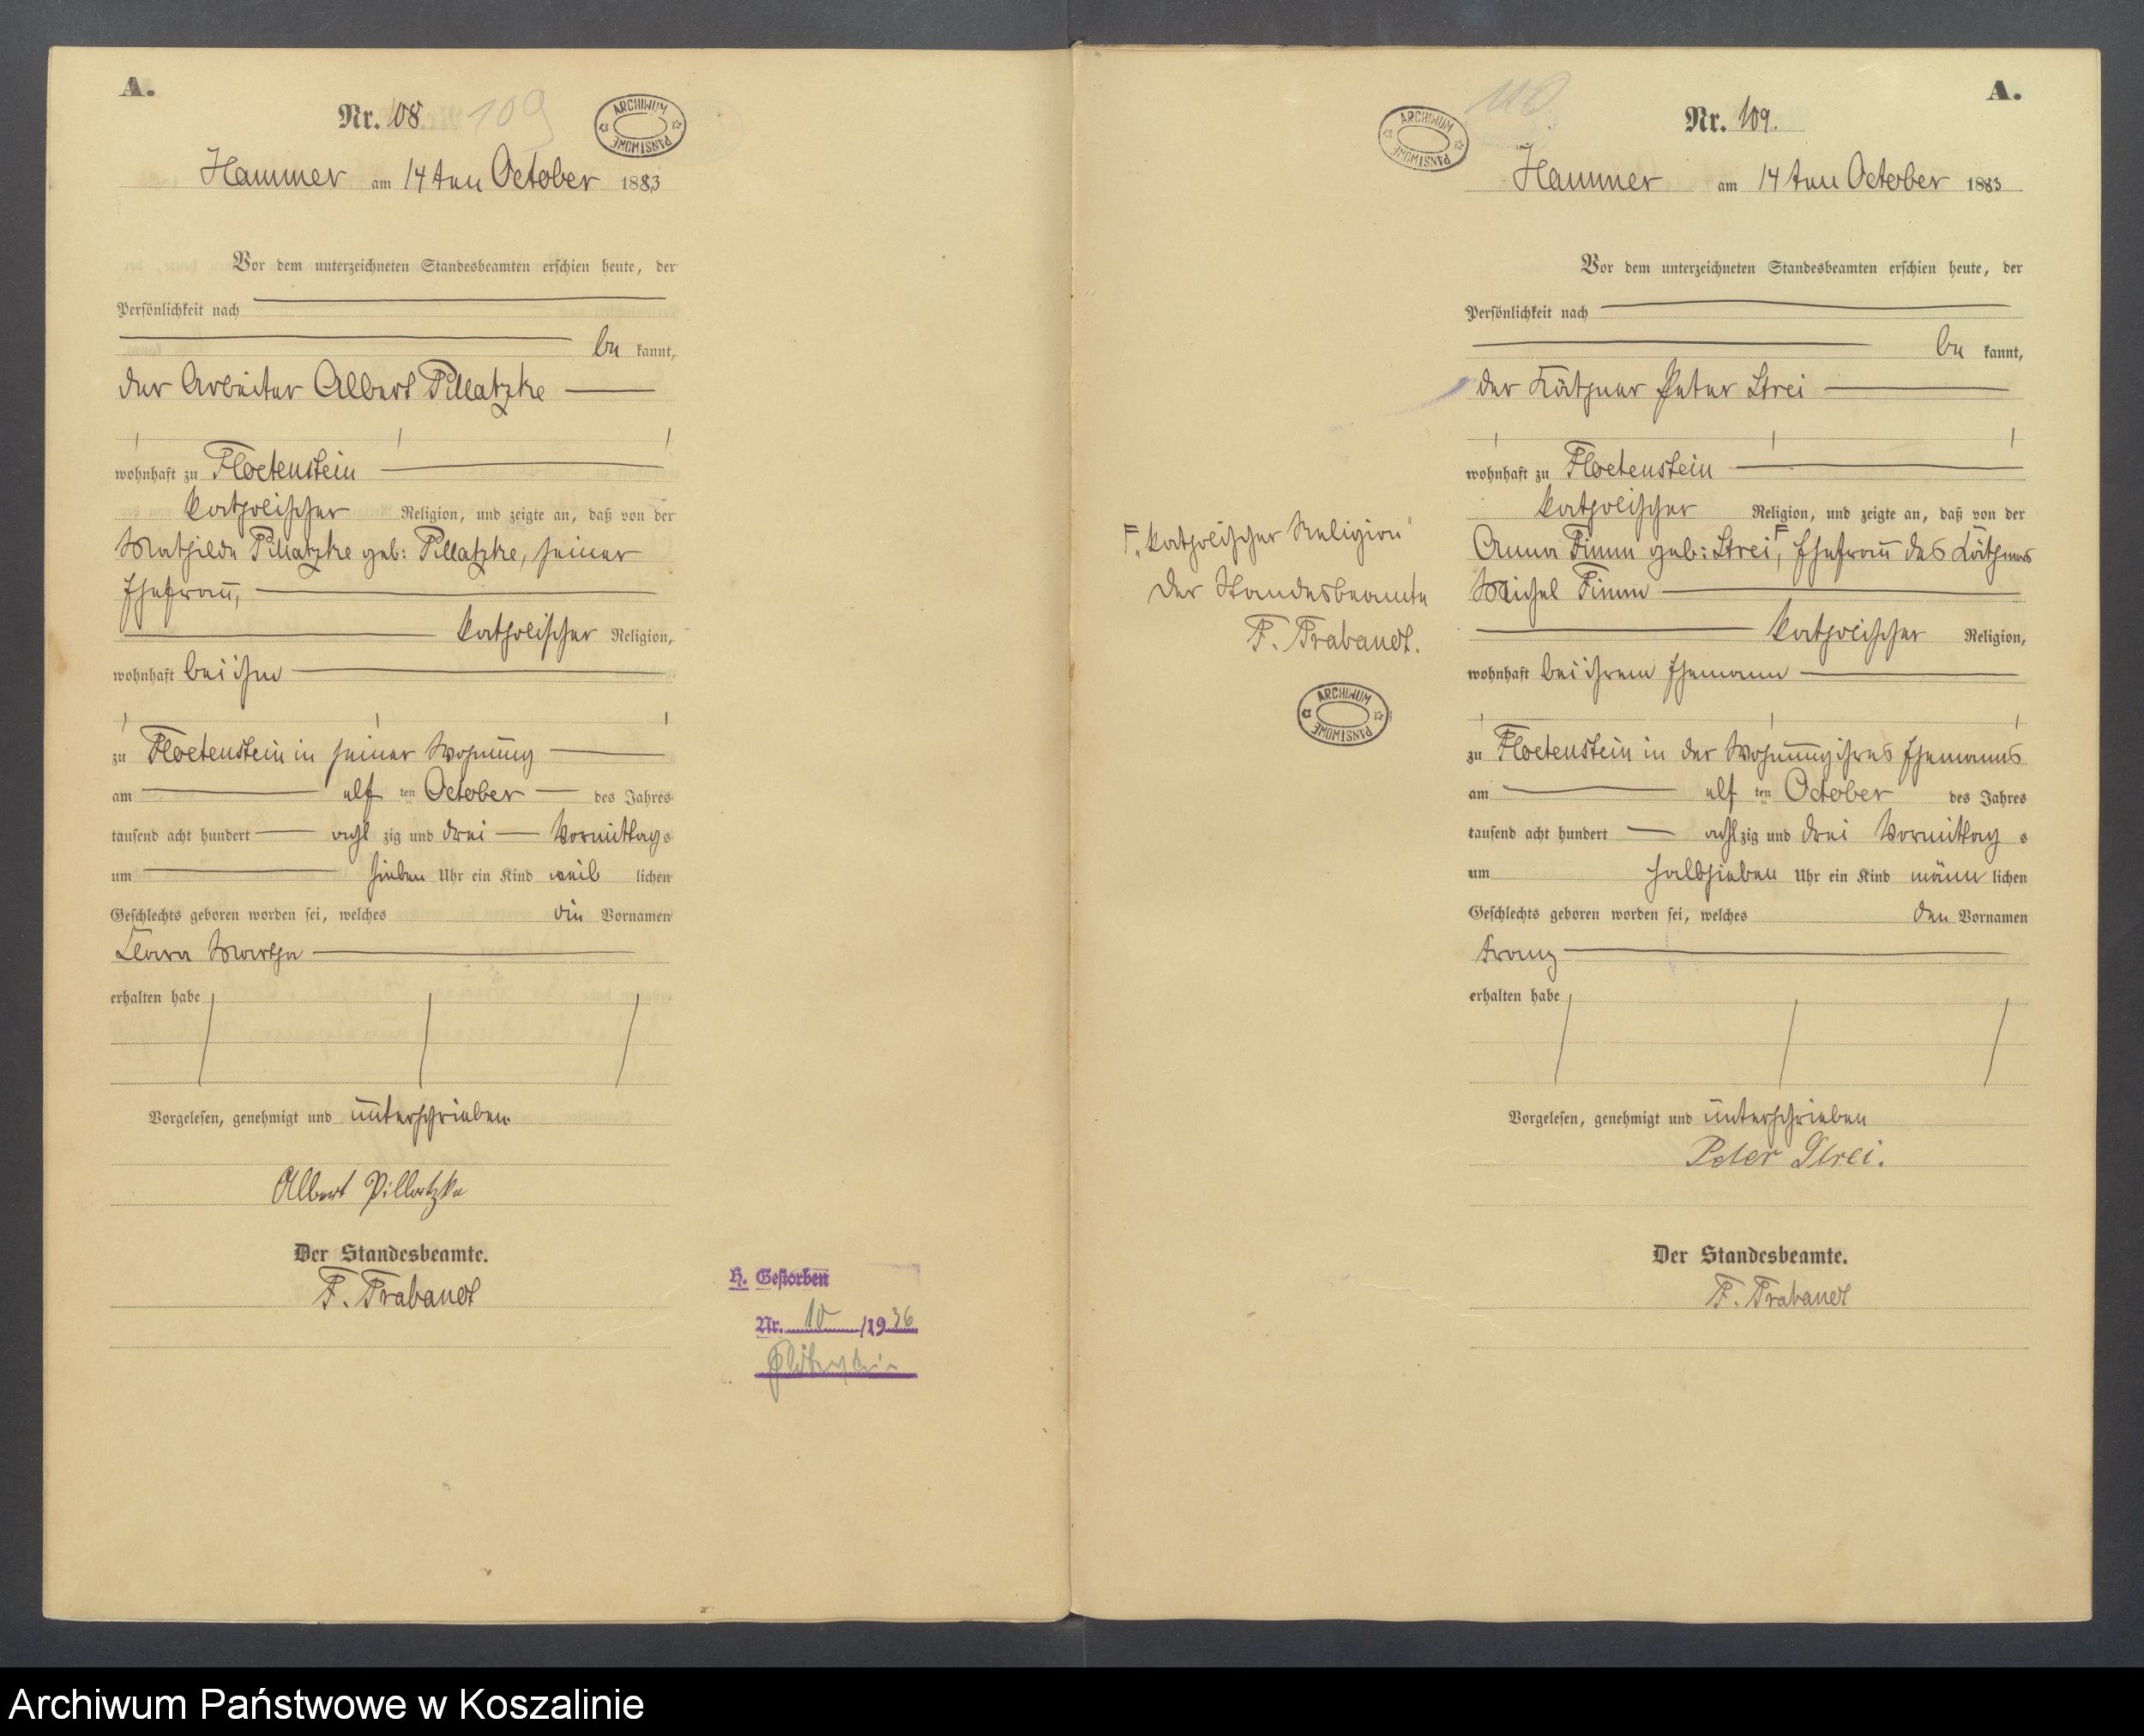 A.
Nr. 108
109
ARCHIWUM PAŃSTWOWE
Hammer am 14ten October 1883
Vor dem unterzeichneten Standesbeamten erschien heute, der
Persönlichkeit nach
be kannt,
der Arbeiter Albert Pillatzke
wohnhaft zu Floetenstein
katholischer Religion, und zeigte an, daß von der
Mathilde Pillatzke geb: Pillatzke, seiner
Ehefrau,
katholischer Religion,
wohnhaft bei ihm
zu Floetenstein in seiner Wohnung
am elf ten October des Jahres
tausend acht hundert acht zig und drei Vormittags
um sieben Uhr ein Kind weib lichen
Geschlechts geboren worden sei, welches die Vornamen
Clara Martha
erhalten habe
Vorgelesen, genehmigt und unterschrieben
Albert Pillatzke
Der Standesbeamte.
F. Trabandt
H. Gestorben
Nr. 10 /1936
Flötenstein
A.
110
Nr. 109.
ARCHIWUM PAŃSTWOWE
Hammer am 14ten October 1883
Vor dem unterzeichneten Standesbeamten erschien heute, der
Persönlichkeit nach
be kannt,
der Käthner Peter Strei
wohnhaft zu Floetenstein
katholischer Religion, und zeigte an, daß von der
Anna Timm geb: Strei, F Ehefrau des Käthners
Michel Timm
katholischer Religion,
wohnhaft bei ihrem Ehemann
zu Floetenstein in der Wohnung ihres Ehemanns
am elf ten October des Jahres
tausend acht hundert acht zig und drei Vormittag s
um halb sieben Uhr ein Kind männ lichen
Geschlechts geboren worden sei, welches den Vornamen
Franz
erhalten habe
Vorgelesen, genehmigt und unterschrieben
Peter Strei.
Der Standesbeamte.
F. Trabandt
F „katholischer Religion"
Der Standesbeamte
F. Trabandt.
ARCHIWUM PAŃSTWOWE
Archiwum Państwowe w Koszalinie